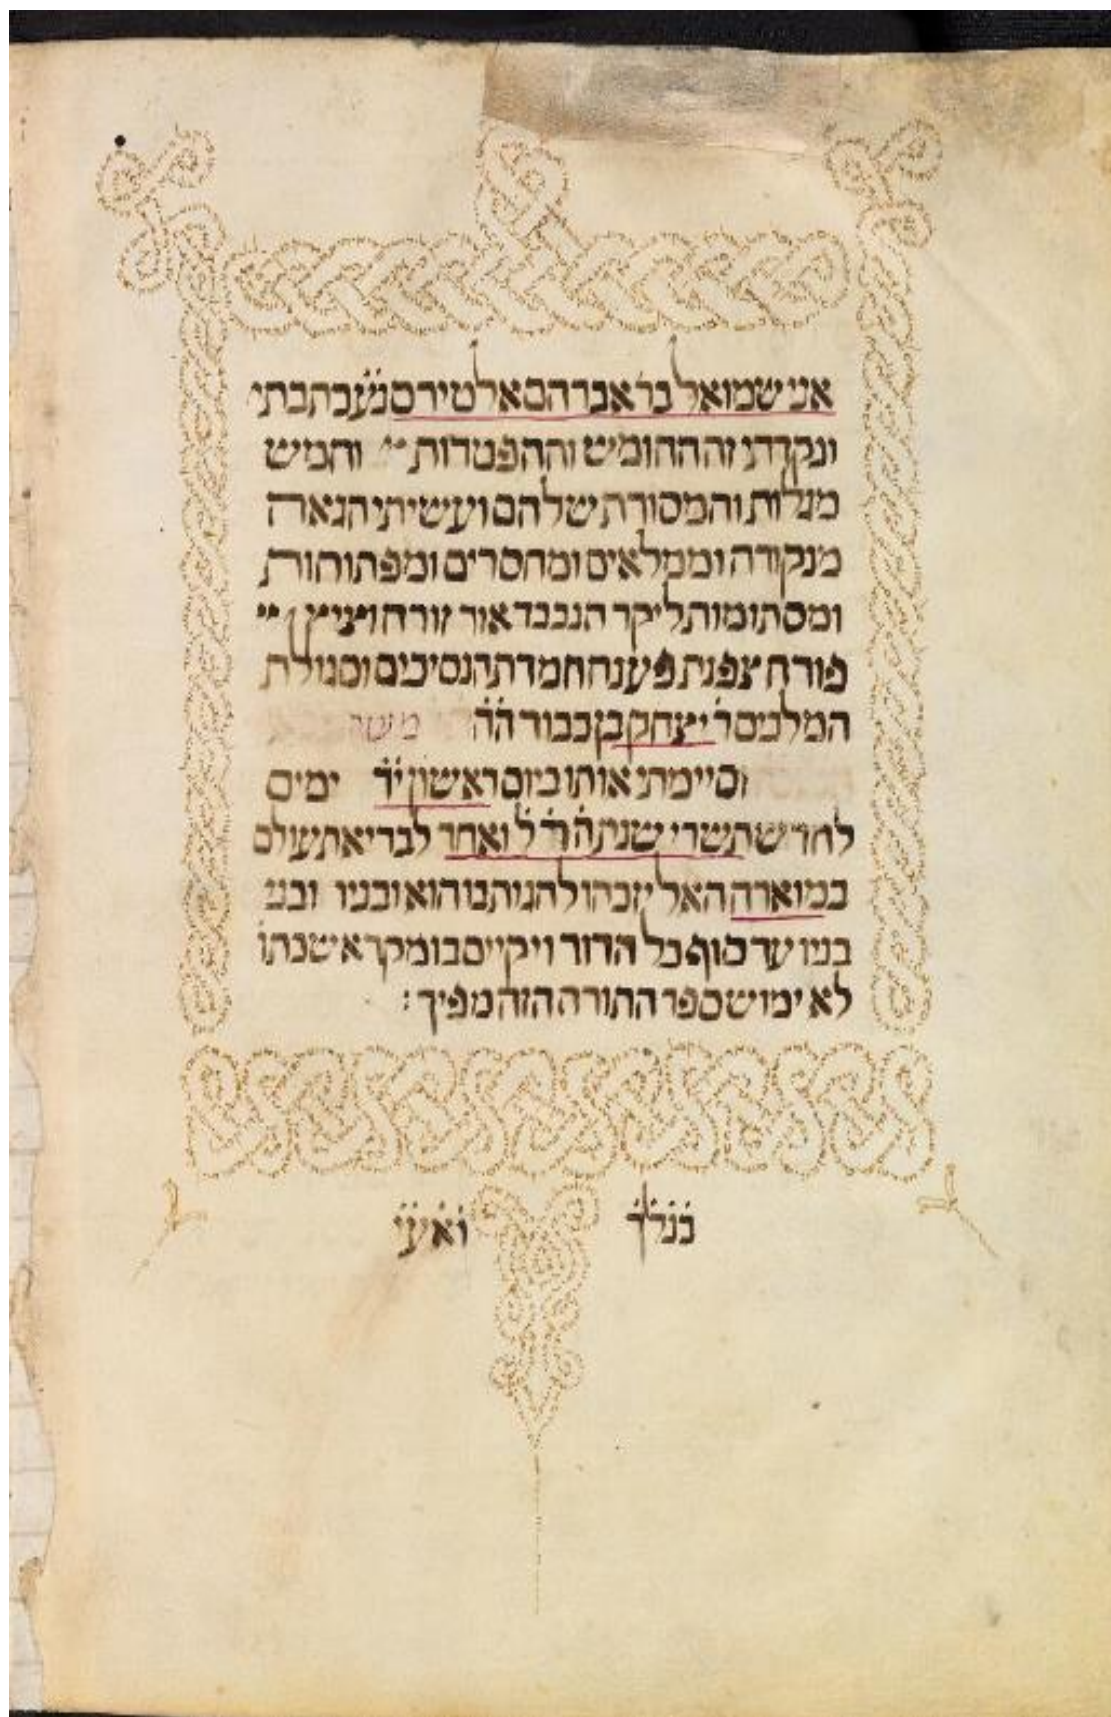 אני שמואל בר אברהם אלטירס נ̇ע̇ כתבתי
ונקדתי זה ההומש וההפטרות וחמש
מגלות והמסורת שלהם ועשיתי הגארה
מנקודה וממלאים ומחסרים ומפתוחות
ומסתומות ליקר הנכבד אור זורח וציץ
פורח צפנת פענח חמדת הנסיכים וסגולת
המלכים ר̇ יצחק בן כבוד ה̇ה̇
וסיימתי אותו ביום ראשון י̇ד̇ ימים
לחדש תשרי שנת ה̇ ד̇ ל̇ ואחד לבריאת עולם
במוארה האל יזכהו להגות בו הוא ובניו ובני
בניו עד סוף כל הדור ויקיים בו מקרא שכתו
לא ימוש ספר התורה הזה מפיך :
כ̇נ̇ל̇ך̇ ו̇א̇ע̇י̇